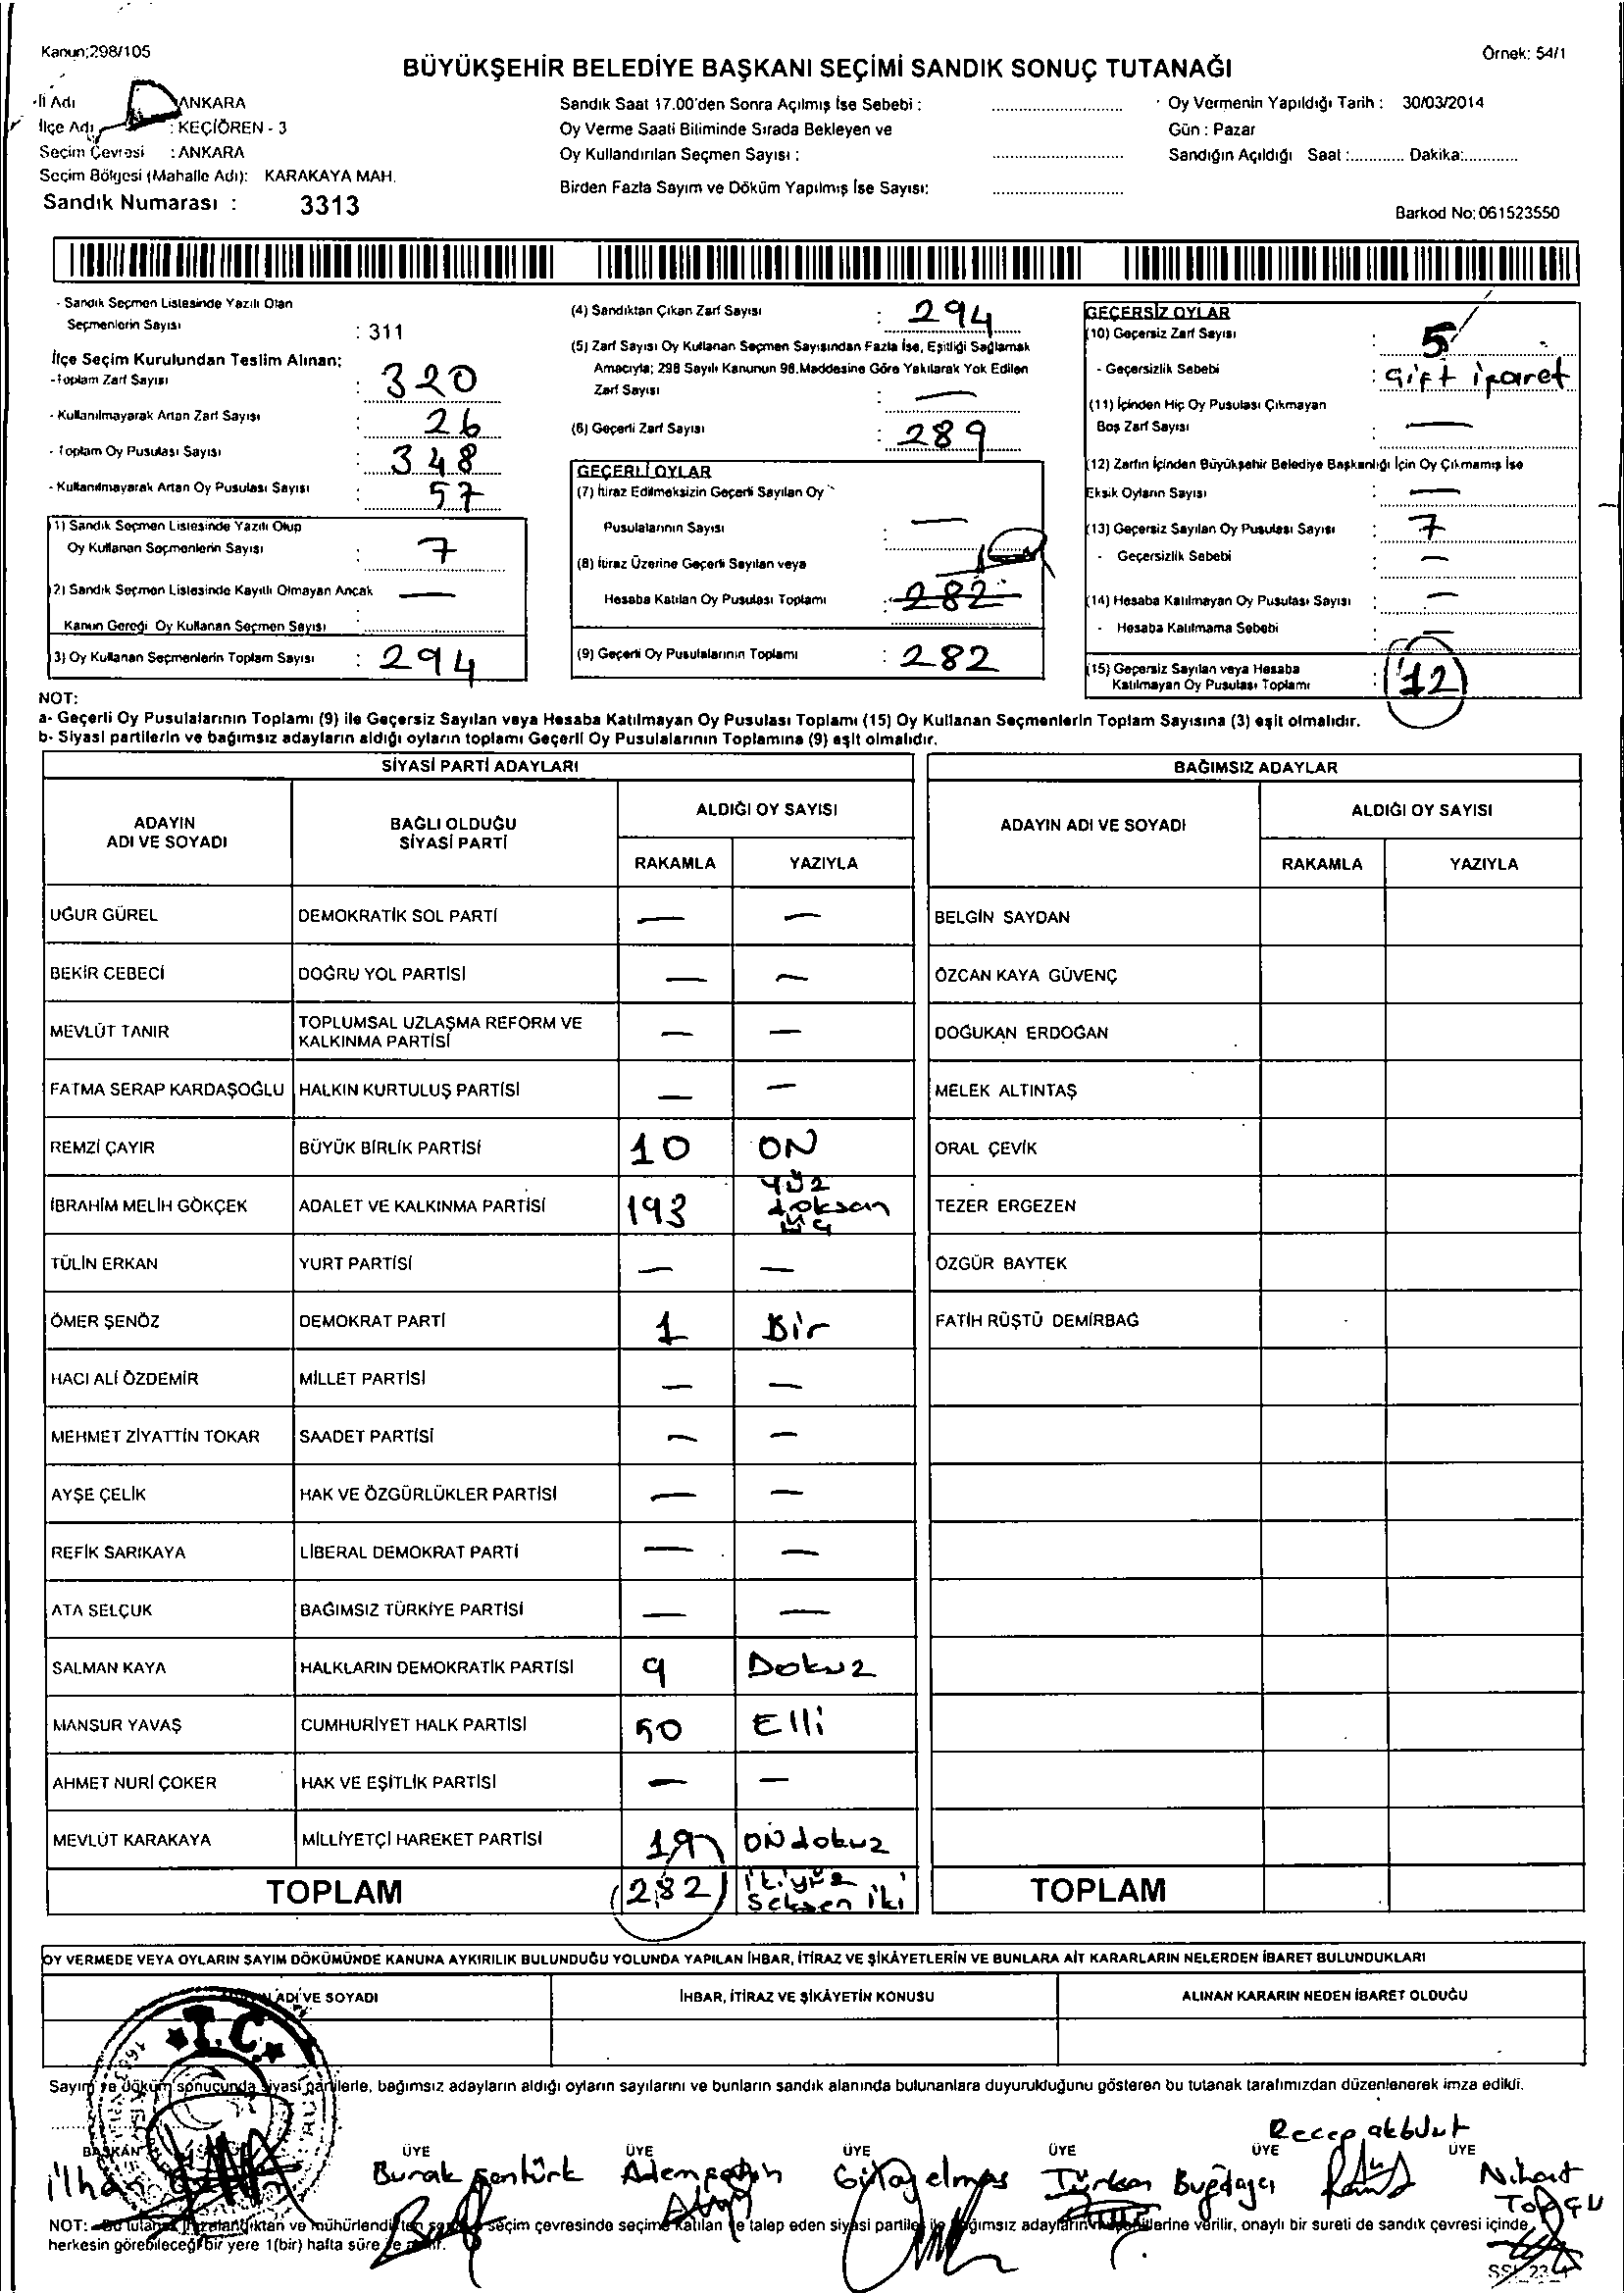 Kanun;298/105
Örnek: 54/1
BÜYÜKŞEHİR BELEDİYE BAŞKANI SEÇİMİ SANDIK SONUÇ TUTANAĞI
İl Adı ANKARA
İlçe Adı : KEÇİÖREN - 3
Seçim Çevresi : ANKARA
Seçim Bölgesi (Mahalle Adı): KARAKAYA MAH.
Sandık Numarası : 3313
Sandık Saat 17.00'den Sonra Açılmış İse Sebebi :
Oy Verme Saati Bitiminde Sırada Bekleyen ve
Oy Kullandırılan Seçmen Sayısı :
Birden Fazla Sayım ve Döküm Yapılmış İse Sayısı:
Oy Vermenin Yapıldığı Tarih : 30/03/2014
Gün : Pazar
Sandığın Açıldığı Saat :............ Dakika:............
Barkod No: 061523550
- Sandık Seçmen Listesinde Yazılı Olan
Seçmenlerin Sayısı : 311
İlçe Seçim Kurulundan Teslim Alınan;
-Toplam Zarf Sayısı : 320
- Kullanılmayarak Artan Zarf Sayısı : 26
- Toplam Oy Pusulası Sayısı : 348
- Kullanılmayarak Artan Oy Pusulası Sayısı : 57
(1) Sandık Seçmen Listesinde Yazılı Olup
Oy Kullanan Seçmenlerin Sayısı : 7
(2) Sandık Seçmen Listesinde Kayıtlı Olmayan Ancak
Kanun Gereği Oy Kullanan Seçmen Sayısı : —
(3) Oy Kullanan Seçmenlerin Toplam Sayısı : 294
(4) Sandıktan Çıkan Zarf Sayısı : 294
(5) Zarf Sayısı Oy Kullanan Seçmen Sayısından Fazla İse, Eşitliği Sağlamak
Amacıyla; 298 Sayılı Kanunun 98.Maddesine Göre Yakılarak Yok Edilen
Zarf Sayısı : —
(6) Geçerli Zarf Sayısı : 289
GEÇERLİ OYLAR
(7) İtiraz Edilmeksizin Geçerli Sayılan Oy
Pusulalarının Sayısı : —
(8) İtiraz Üzerine Geçerli Sayılan veya
Hesaba Katılan Oy Pusulası Toplamı : 282
(9) Geçerli Oy Pusulalarının Toplamı : 282
GEÇERSİZ OYLAR
(10) Geçersiz Zarf Sayısı : 5
- Geçersizlik Sebebi : Çift işaret
(11) İçinden Hiç Oy Pusulası Çıkmayan
Boş Zarf Sayısı : —
(12) Zarfın İçinden Büyükşehir Belediye Başkanlığı İçin Oy Çıkmamış İse
Eksik Oyların Sayısı : —
(13) Geçersiz Sayılan Oy Pusulası Sayısı : 7
- Geçersizlik Sebebi : —
(14) Hesaba Katılmayan Oy Pusulası Sayısı : —
- Hesaba Katılmama Sebebi : —
(15) Geçersiz Sayılan veya Hesaba
Katılmayan Oy Pusulası Toplamı : 12
NOT:
a- Geçerli Oy Pusulalarının Toplamı (9) ile Geçersiz Sayılan veya Hesaba Katılmayan Oy Pusulası Toplamı (15) Oy Kullanan Seçmenlerin Toplam Sayısına (3) eşit olmalıdır.
b- Siyasi partilerin ve bağımsız adayların aldığı oyların toplamı Geçerli Oy Pusulalarının Toplamına (9) eşit olmalıdır.
SİYASİ PARTİ ADAYLARI
ADAYIN ADI VE SOYADI BAĞLI OLDUĞU SİYASİ PARTİ ALDIĞI OY SAYISI
RAKAMLA YAZIYLA
UĞUR GÜREL DEMOKRATİK SOL PARTİ — —
BEKİR CEBECİ DOĞRU YOL PARTİSİ — —
MEVLÜT TANIR TOPLUMSAL UZLAŞMA REFORM VE KALKINMA PARTİSİ — —
FATMA SERAP KARDAŞOĞLU HALKIN KURTULUŞ PARTİSİ — —
REMZİ ÇAYIR BÜYÜK BİRLİK PARTİSİ 10 ON
İBRAHİM MELİH GÖKÇEK ADALET VE KALKINMA PARTİSİ 193 yüz doksan üç
TÜLİN ERKAN YURT PARTİSİ — —
ÖMER ŞENÖZ DEMOKRAT PARTİ 1 Bir
HACI ALİ ÖZDEMİR MİLLET PARTİSİ — —
MEHMET ZİYATTİN TOKAR SAADET PARTİSİ — —
AYŞE ÇELİK HAK VE ÖZGÜRLÜKLER PARTİSİ — —
REFİK SARIKAYA LİBERAL DEMOKRAT PARTİ — —
ATA SELÇUK BAĞIMSIZ TÜRKİYE PARTİSİ — —
SALMAN KAYA HALKLARIN DEMOKRATİK PARTİSİ 9 Dokuz
MANSUR YAVAŞ CUMHURİYET HALK PARTİSİ 50 Elli
AHMET NURİ ÇOKER HAK VE EŞİTLİK PARTİSİ — —
MEVLÜT KARAKAYA MİLLİYETÇİ HAREKET PARTİSİ 19 ON dokuz
TOPLAM 282 ikiyüz Seksen iki
BAĞIMSIZ ADAYLAR
ADAYIN ADI VE SOYADI ALDIĞI OY SAYISI
RAKAMLA YAZIYLA
BELGİN SAYDAN
ÖZCAN KAYA GÜVENÇ
DOĞUKAN ERDOĞAN
MELEK ALTINTAŞ
ORAL ÇEVİK
TEZER ERGEZEN
ÖZGÜR BAYTEK
FATİH RÜŞTÜ DEMİRBAĞ
TOPLAM
OY VERMEDE VEYA OYLARIN SAYIM DÖKÜMÜNDE KANUNA AYKIRILIK BULUNDUĞU YOLUNDA YAPILAN İHBAR, İTİRAZ VE ŞİKÂYETLERİN VE BUNLARA AİT KARARLARIN NELERDEN İBARET BULUNDUKLARI
ADI VE SOYADI İHBAR, İTİRAZ VE ŞİKÂYETİN KONUSU ALINAN KARARIN NEDEN İBARET OLDUĞU
T.C.
Sayım ve döküm sonucunda siyasi partilerle, bağımsız adayların aldığı oyların sayılarını ve bunların sandık alanında bulunanlara duyurulduğunu gösteren bu tutanak tarafımızdan düzenlenerek imza edildi.
Recep akbulut
BAŞKAN ÜYE ÜYE ÜYE ÜYE ÜYE ÜYE
İlhan Burak Şentürk Adem Türkan Buğdaycı Nihat
NOT: Bu tutanak seçim çevresinde seçime katılan ve talep eden siyasi partiler ile bağımsız adayların verilir, onaylı bir sureti de sandık çevresi içinde
herkesin görebileceği bir yere 1(bir) hafta süre ile